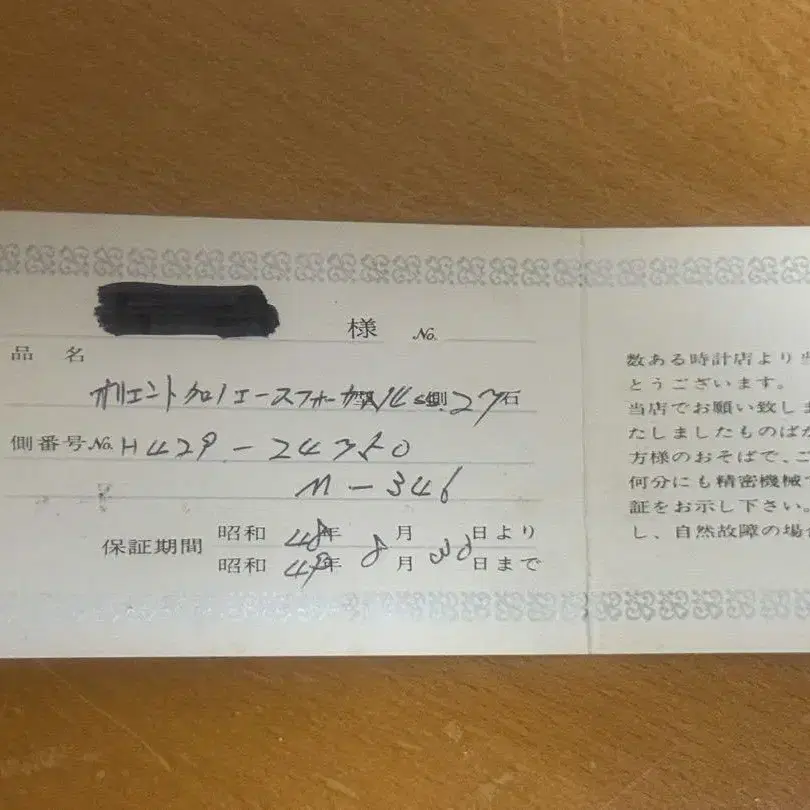 様 No.
品名
オリエントクロノエースフォーカス 型 側 27石
側番号 No. H429-24350
M-346
保証期間 昭和 48年 8月 30日より
昭和 49年 月 日まで
数ある時計店より当
とうございます。
当店でお願い致しま
たしましたものばか
方様のおそばで、ご
何分にも精密機械で
証をお示し下さい。
し、自然故障の場合